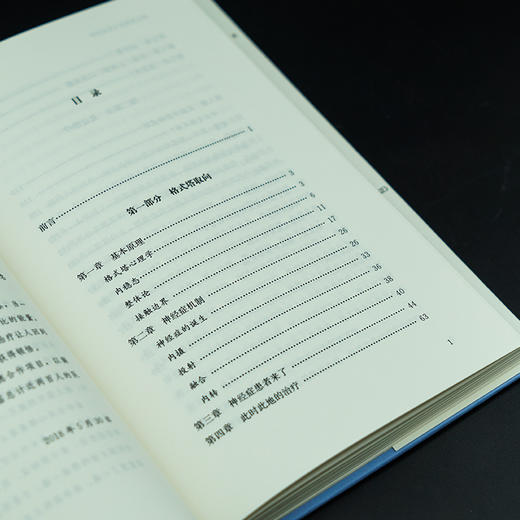 目 录
前言 1
第一部分 格式塔取向
第一章 基本原理 3
格式塔心理学 3
内稳态 6
整体论 11
接触边界 17
第二章 神经症机制 26
神经症的诞生 26
内摄 33
投射 36
融合 38
内转 40
第三章 神经症患者来了 44
第四章 此时此地的治疗 63
1